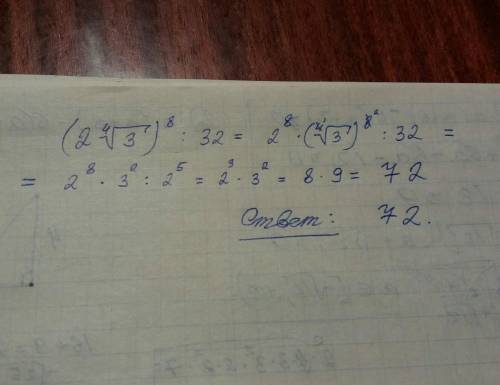 (2∜3)⁸ : 32 = 2⁸ · (∜3)⁸² : 32 =
= 2⁸ · 3² : 2⁵ = 2³ · 3² = 8 · 9 = 72
Ответ: 72.